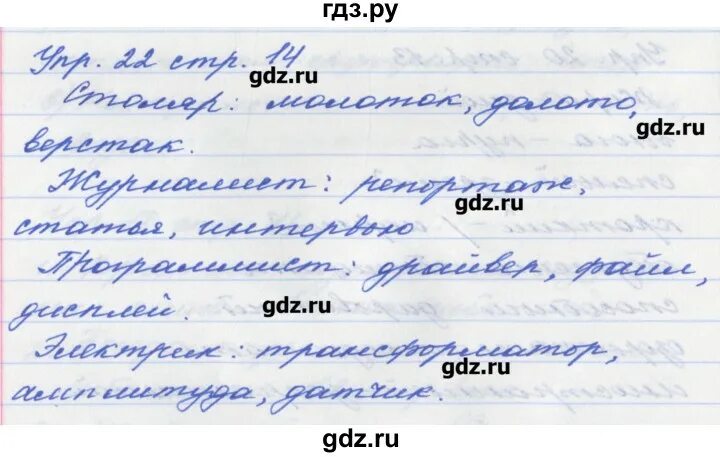 гдз.ру
Упр. 22 стр. 14
gdz.ru
Столяр: молоток, долото,
gdz.ru
верстак.
Журналист: репортаж,
gdz.ru
статья, интервью
Программист: драйвер, файл,
дисплей.
gdz.ru
Электрик: трансформатор,
gdz.ru
амплитуда, датчик.
gdz.ru